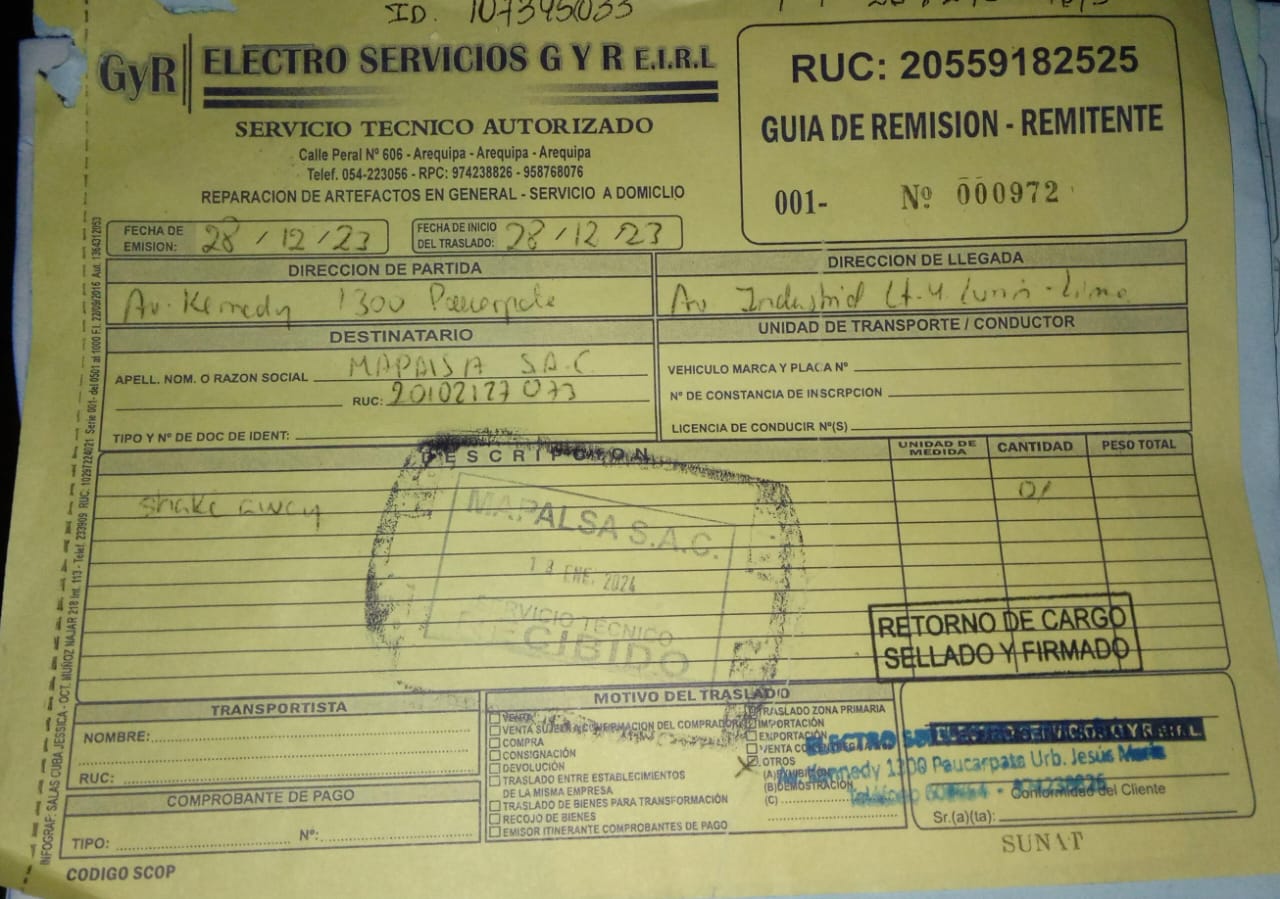 ID. 107395033
GyR
ELECTRO SERVICIOS G Y R E.I.R.L
SERVICIO TECNICO AUTORIZADO
Calle Peral Nº 606 - Arequipa - Arequipa - Arequipa
Telef. 054-223056 - RPC: 974238826 - 958768076
REPARACION DE ARTEFACTOS EN GENERAL - SERVICIO A DOMICLIO
RUC: 20559182525
GUIA DE REMISION - REMITENTE
001- Nº 000972
FECHA DE EMISION: 28 / 12 / 23
FECHA DE INICIO DEL TRASLADO: 28 / 12 / 23
DIRECCION DE PARTIDA
Av. Kennedy 1300 Paucarpata
DIRECCION DE LLEGADA
Av Industrial Lt. 4 Lurin - Lima
DESTINATARIO
APELL. NOM. O RAZON SOCIAL MAPALSA S.A.C.
RUC: 20102127073
TIPO Y Nº DE DOC DE IDENT:
UNIDAD DE TRANSPORTE / CONDUCTOR
VEHICULO MARCA Y PLACA Nº
Nº DE CONSTANCIA DE INSCRPCION
LICENCIA DE CONDUCIR Nº(S)
DESCRIPCION
UNIDAD DE MEDIDA
CANTIDAD
PESO TOTAL
shake away 01
MAPALSA S.A.C.
ENE. 2024
SERVICIO TECNICO
RECIBIDO
RETORNO DE CARGO
SELLADO Y FIRMADO
TRANSPORTISTA
NOMBRE:
RUC:
COMPROBANTE DE PAGO
TIPO: Nº:
CODIGO SCOP
MOTIVO DEL TRASLADIO
VENTA
VENTA SUJETA A CONFIRMACION DEL COMPRADOR
COMPRA
CONSIGNACIÓN
DEVOLUCIÓN
TRASLADO ENTRE ESTABLECIMIENTOS
DE LA MISMA EMPRESA
TRASLADO DE BIENES PARA TRANSFORMACIÓN
RECOJO DE BIENES
EMISOR ITINERANTE COMPROBANTES DE PAGO
TRASLADO ZONA PRIMARIA
IMPORTACIÓN
EXPORTACIÓN
VENTA CON ENTREGA
X OTROS
(A) EXHIBICIÓN
(B) DEMOSTRACIÓN
(C)
ELECTRO SERVICIOS G Y R E.I.R.L
Av. Kennedy 1300 Paucarpata Urb. Jesús María
Teléfono
Conformidad del Cliente
Sr.(a)(ta):
SUNAT
INFOGRAF: SALAS CUBA JESSICA - OCT. MUÑOZ NAJAR 218 Int. 113 - Telef. 233909 RUC: 10297224021 Serie 001- del 0501 al 1000 F.I. 22/09/2016 Aut. 1364312053